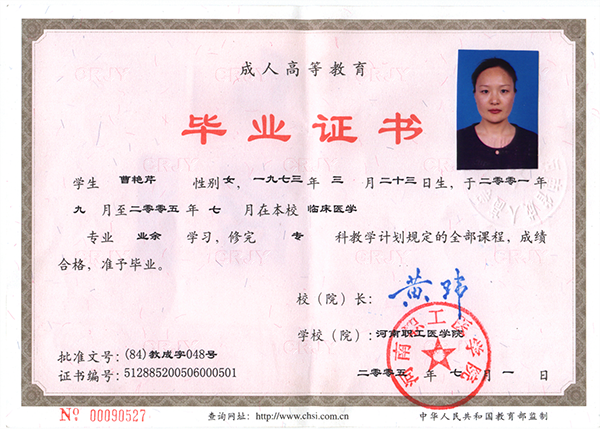 成人高等教育
毕业证书
学生 曹艳芹 性别 女，一九七三 年 三 月 二十三 日生，于 二零零一 年
九 月至 二零零五 年 七 月在本校 临床医学
专业 业余 学习，修完 专 科教学计划规定的全部课程，成绩
合格，准予毕业。
校（院）长： 黄玮
学校（院）：河南职工医学院
河南职工医学院
批准文号：(84)教成字048号
证书编号：512885200506000501
二零零五 年 七 月 一 日
№ 00090527
查询网址：http://www.chsi.com.cn
中华人民共和国教育部监制